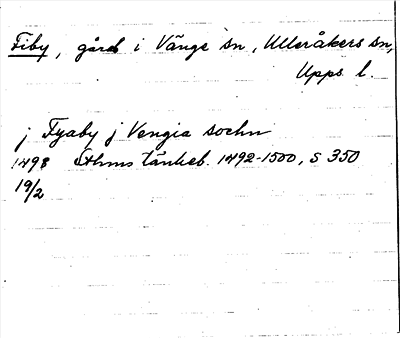 Fiby, gård i Vänge sn, Ulleråkers sn,
Upps. l.
j Fyaby j Vengia sochn
1498 Sthms tänkeb. 1492-1500, s 350
19/2